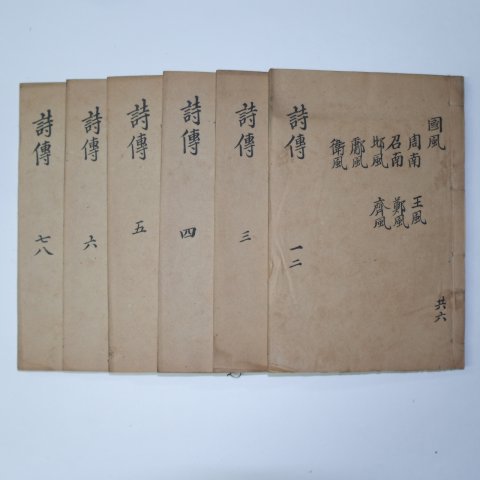 國風
周南
召南
邶風
鄘風
衛風
王風
鄭風
齊風
共六
詩傳
一二
詩傳
三
詩傳
四
詩傳
五
詩傳
六
詩傳
七八